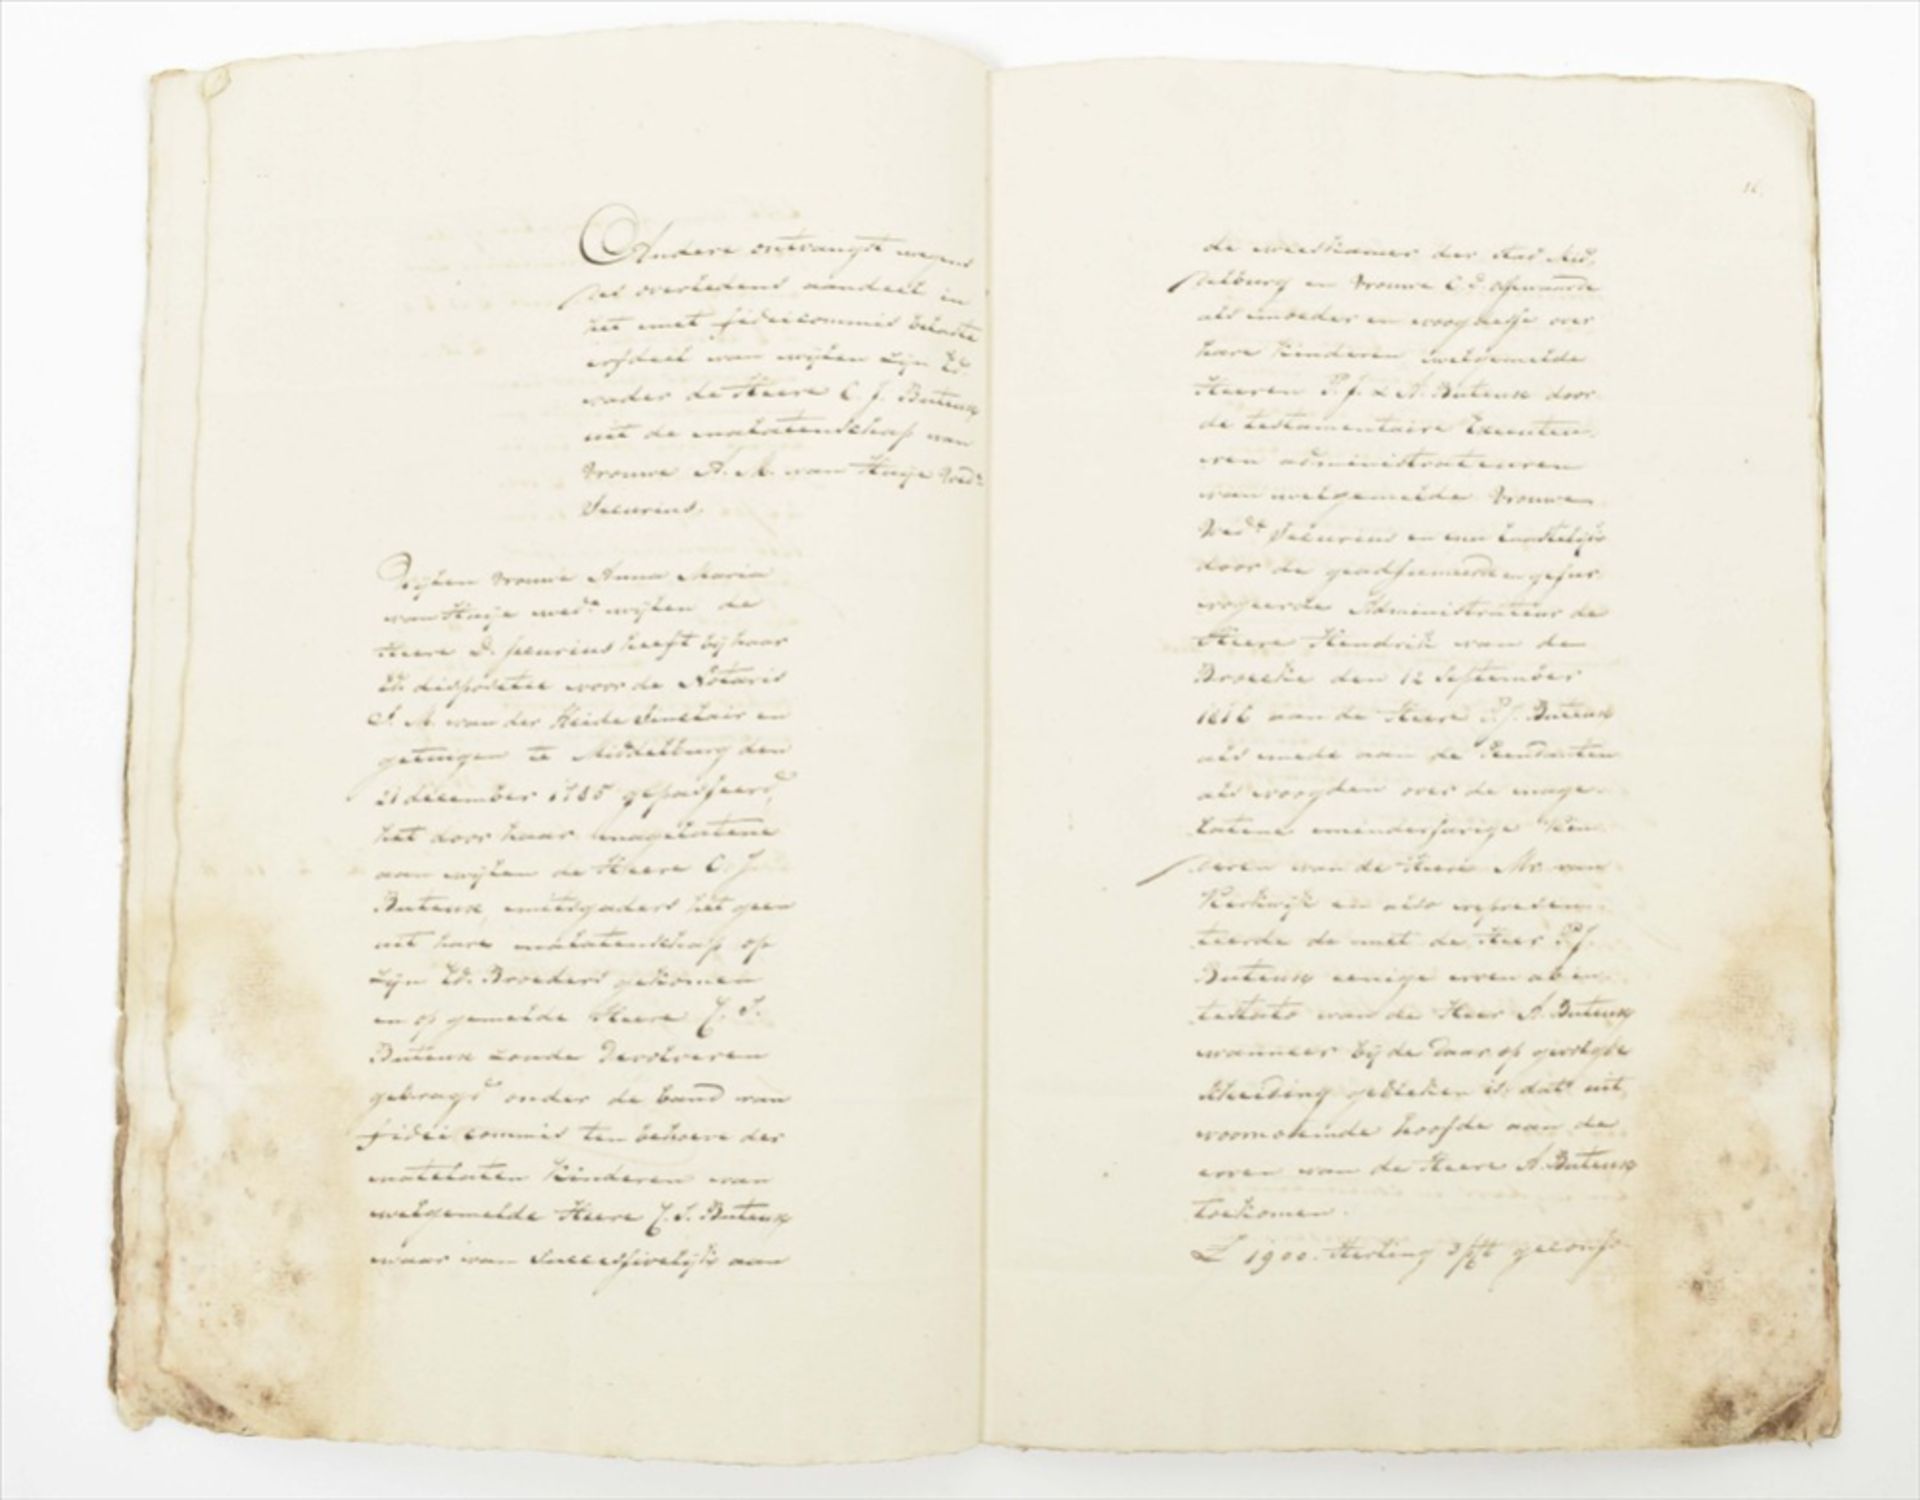 Andere ontvangst wegens
des overledens aandeel in
het met fideicommis belaste
erfdeel van wijlen zijn Ed.
vader de Heere C. J. Buteux
uit de nalatenschap van
Vrouwe A. M. van Huije Wed.e
Seeurius.
Wijlen Vrouwe Anna Maria
van Huije wed.e wijlen de
Heere D. Seeurius heeft bij haar
Ed. dispositie voor de Notaris
S. A. van der Heide Sinclair en
getuigen te Middelburg den
21 december 1785 gepasseerd,
het door haar nagelatene
aan wijlen de Heere C. J.
Buteux, mitsgaders het geen
uit hare nalatenschap op
zijn Ed. Broeders gekomen
en op gemelde Heere C. J.
Buteux zoude devolveren
gebragt onder de band van
fidei commis ten behoeve der
natelaten kinderen van
welgemelde Heere C. J. Buteux
waar van successivelijk aan
16.
de weeskamer der stad Mid,
delburg en Vrouwe C. d.
als moeder en voogdesse over
hare kinderen welgemelde
Heeren P. J. & A. Buteux door
de testamentaire Executeu,
ren administrateuren
van welgemelde Vrouwe
Wed.e Seeurius en nu laatstelijk
door de geadsumeerde en gesur,
rogeerde Administrateur de
Heere Hendrik van den
Broecke den 12 September
1816 aan de Heere P. J. Buteux
als mede aan de Rendanten
als voogden over de nage,
latene minderjarige kin,
deren van de Heere Mr. van
Kerkwijk en also represen,
teerde de met de Heer P. J.
Buteux eenige erven ab in,
testato van de Heer A. Buteux
wanneer bij de daar op gevolgde
scheiding gebleken is, dat uit
voornoemde hoofde aan de
erven van de Heere A. Buteux
toekomen.
£ 1900. Sterling 3 pCt geconso